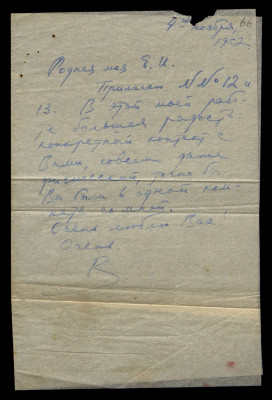 9 ноября,
66
1952.
Родная моя Е. И.
Прилагаю №№ 12 и
13. В этой моей рабо-
те большая радость:
конкретный контакт с
Вами, совсем даже
физический, точно бы
Вы были в одной ком-
нате со мной.
Очень люблю Вас!
Очень.